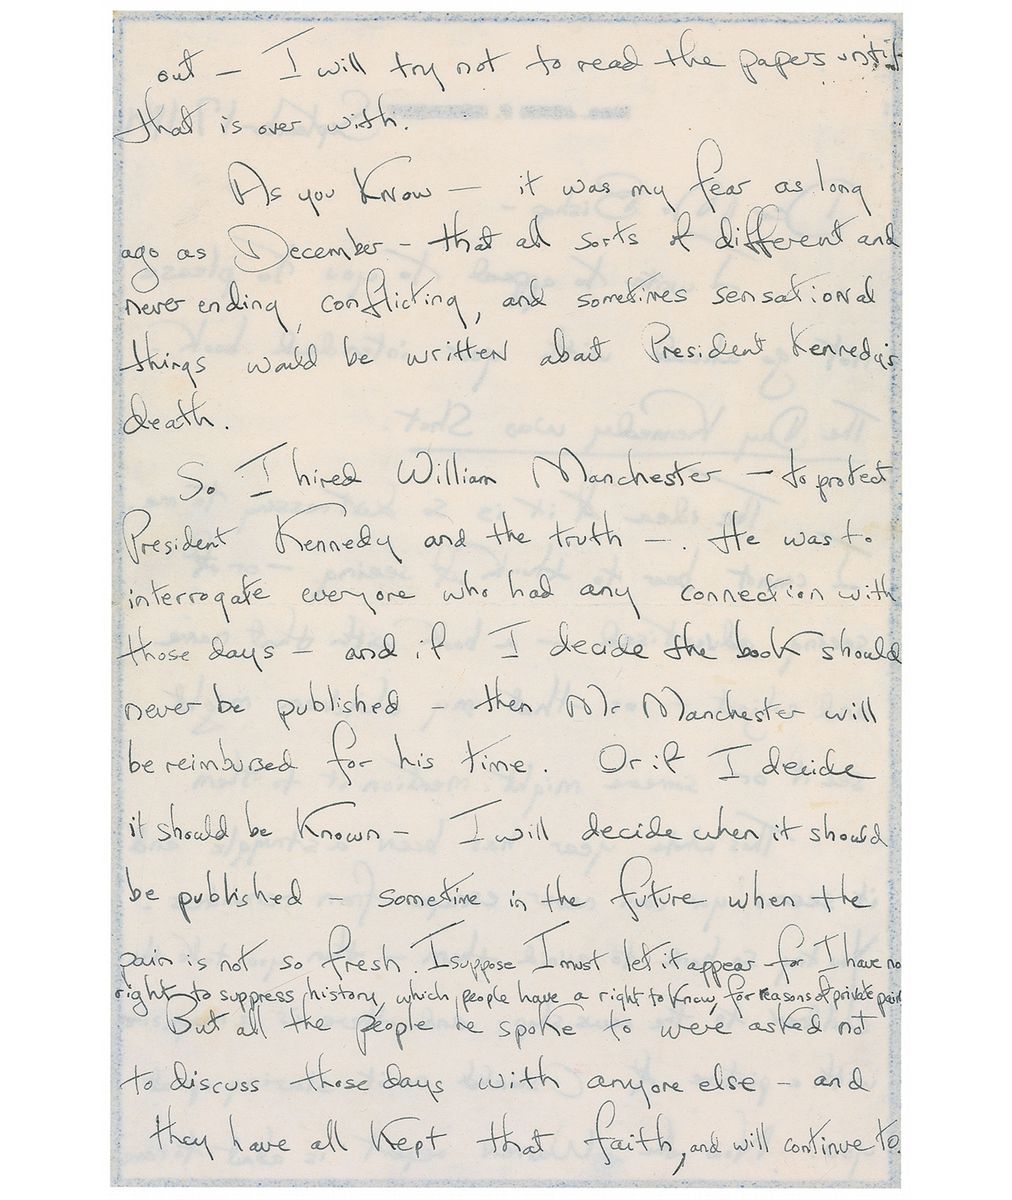 out — I will try not to read the papers until
that is over with.
As you know — it was my fear as long
ago as December — that all sorts of different and
never ending, conflicting, and sometimes sensational
things would be written about President Kennedy's
death.
So I hired William Manchester — to protect
President Kennedy and the truth —. He was to
interrogate everyone who had any connection with
those days — and if I decide the book should
never be published — then Mr Manchester will
be reimbursed for his time. Or if I decide
it should be known — I will decide when it should
be published — sometime in the future when the
pain is not so fresh. I suppose I must let it appear for I have no
right to suppress history, which people have a right to know, for reasons of private pain
But all the people he spoke to were asked not
to discuss those days with anyone else — and
they have all kept that faith, and will continue to.